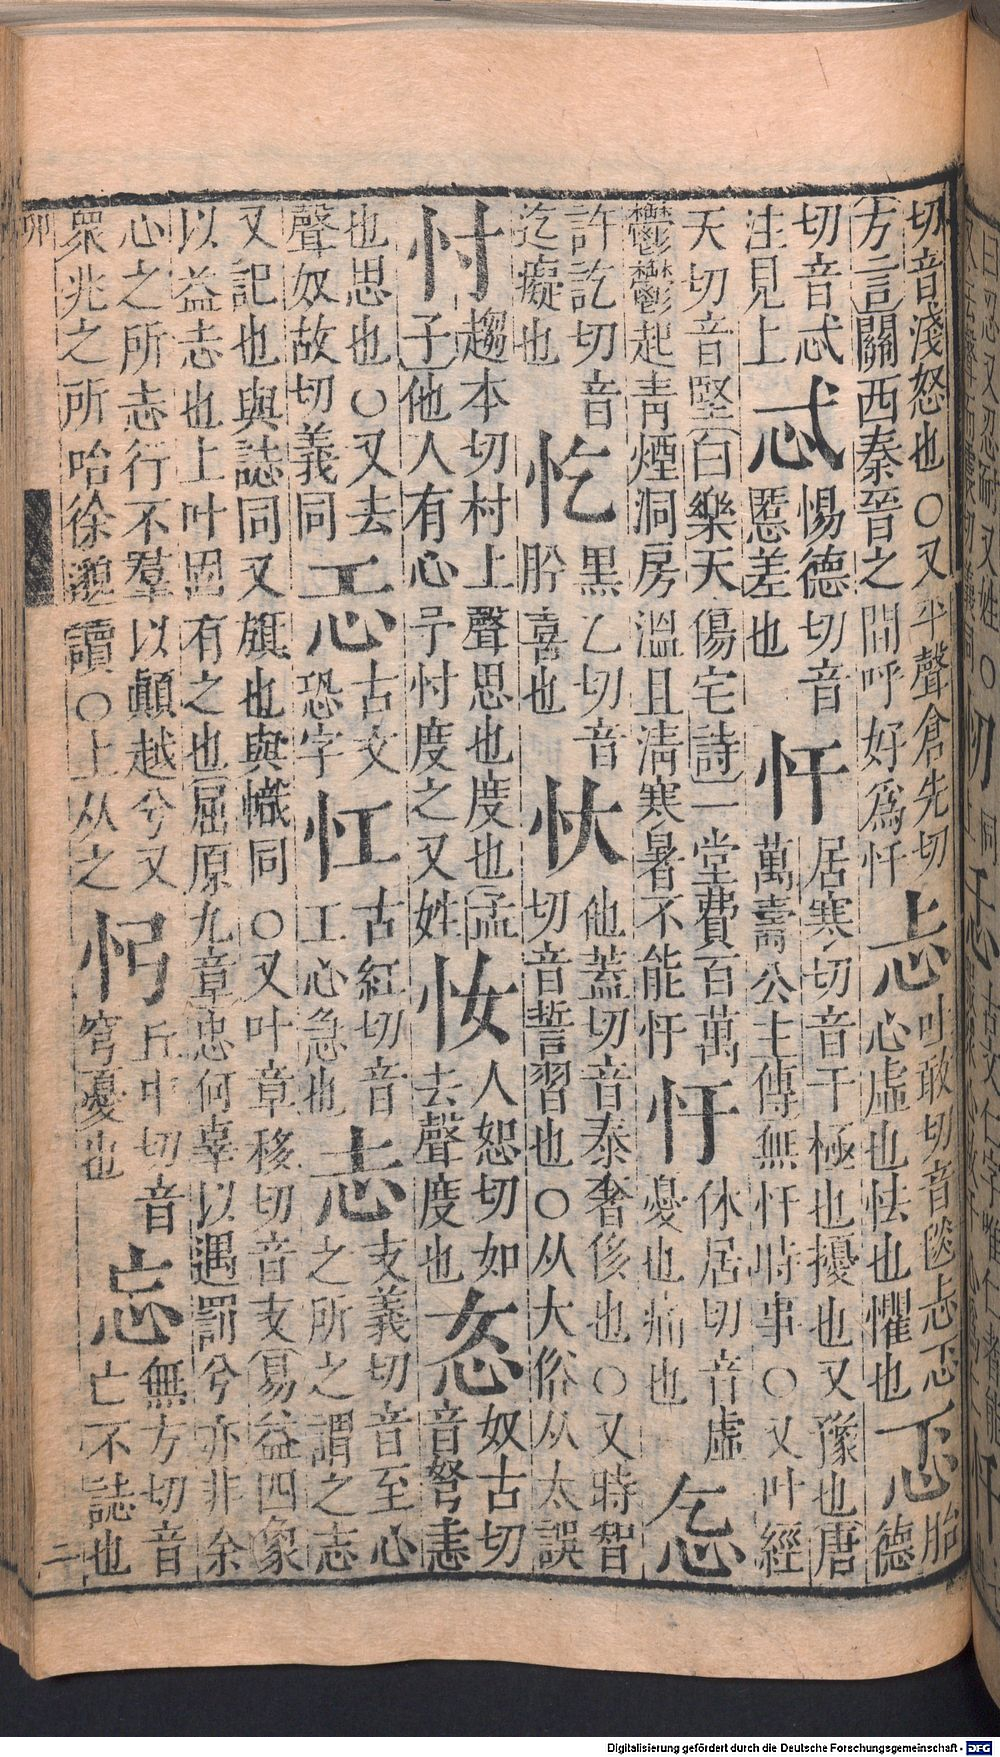 切音淺怒也○又平聲倉先切方言關西秦晉之間呼好為忏忐吐敢切音毯忐忑心虛也怯也懼也忑胎德
切音忒注見上忒惕德切音慝差也忓居寒切音干極也擾也又豫也唐萬壽公主傳無忓時事○又叶經
天切音堅白樂天傷宅詩一堂費百萬鬱鬱起青煙洞房溫且清寒暑不能忓休居切音虛憂也痛也
許訖切音迄癡也忔黑乙切音肸喜也忕他蓋切音泰奢侈也○又時智切音誓習也○从大俗从太誤
忖趨本切村上聲思也度也孟子他人有心予忖度之又姓人恕切如去聲度也㣽奴古切音弩恚
也思也○又去聲奴故切義同古文恐字古紅切音工心急也志支義切音至心之所之謂之志
又記也與誌同又旗也與幟同○又叶章移切音支易益四象以益志也上叶固有之也屈原九章忠何辜以遇罰兮亦非余
心之所志行不羣以顛越兮又眾兆之所咍徐邈讀○上从之丘中切音穹憂也忘無方切音亡不誌也
卯
二
Digitalisierung gefördert durch die Deutsche Forschungsgemeinschaft - DFG